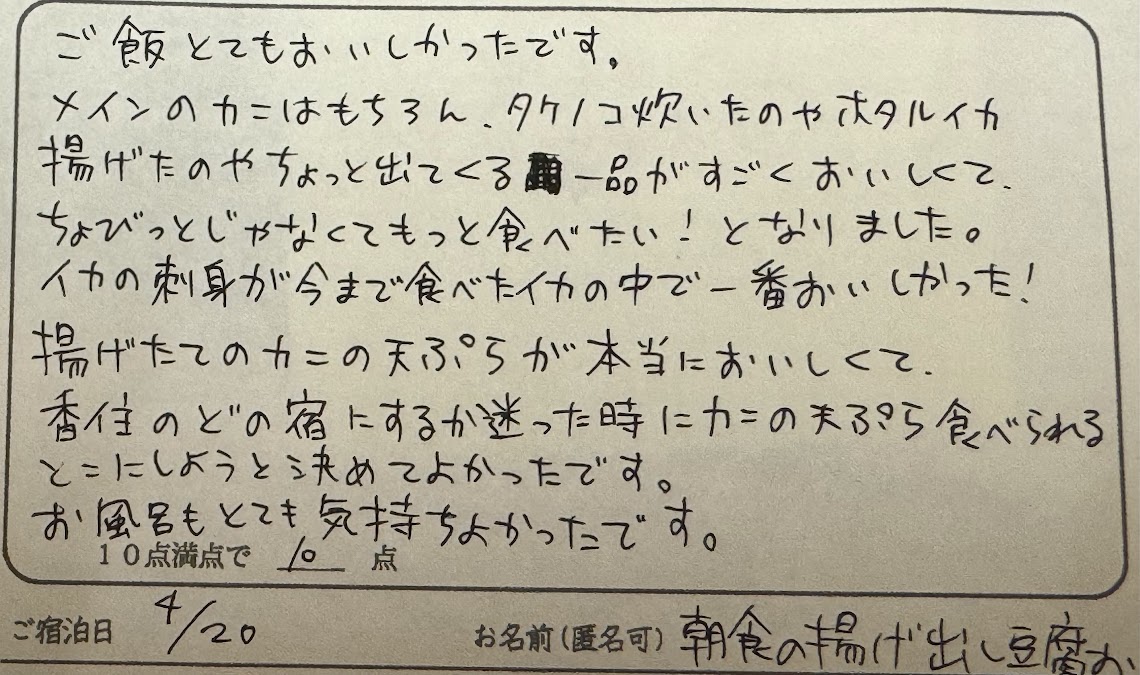 ご飯とてもおいしかったです。
メインのカニはもちろん、タケノコ炊いたのやホタルイカ
揚げたのやちょっと出てくる一品がすごくおいしくて、
ちょびっとじゃなくてもっと食べたい！となりました。
イカの刺身が今まで食べたイカの中で一番おいしかった！
揚げたてのカニの天ぷらが本当においしくて、
香住のどの宿にするか迷った時にカニの天ぷら食べられる
とこにしようと決めてよかったです。
お風呂もとても気持ちよかったです。
10点満点で 10 点
ご宿泊日 4/20 お名前(匿名可) 朝食の揚げ出し豆腐お